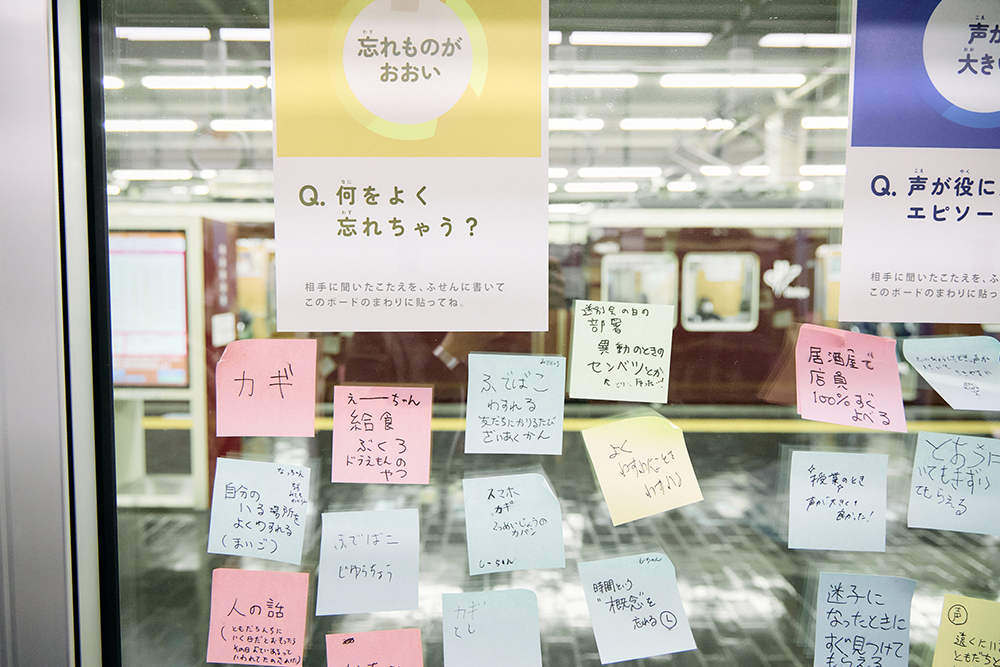 忘れものが
おおい
Q. 何をよく
忘れちゃう?
相手に聞いたこたえを、ふせんに書いて
このボードのまわりに貼ってね。
声が
大き
Q. 声が役に
エピソー
相手に聞いたこたえを、ふ
このボードのまわりに貼っ
カギ
えーーちゃん
給食
ぶくろ
ドラえもんの
やつ
ふでばこ
わすれる
友だちにかりるたび
ざいあくかん
送別会の日の
部署
異動のときの
センベツとか
居酒屋で
店員
100%すぐ
よべる
自分の
いる場所を
よくわすれる
(まいご)
ふでばこ
じゆうちょう
スマホ
カギ
カバン
しーちゃん
よく
"授業のとき
声が大きくて
良かった!
いてもきずい
てもらえる
人の話
(ともだちんちに
いく日だとおもったら
いわれてたのされた)
カギ
しーちゃん
時間という
"概念"を
忘れる
迷子に
なったときに
すぐ見つけて
もらえる
声
遠くにい
ともだち